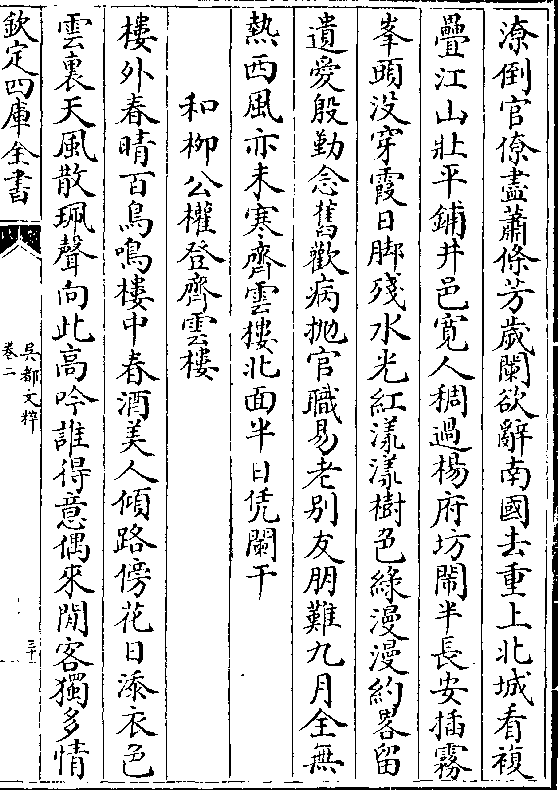 潦倒官僚盡蕭條芳歲闌欲辭南國去重上北城看複
疊江山壯平鋪井邑寛人稠過楊府坊鬧半長安插霧
峯頭没穿霞日脚殘水光紅漾漾樹色綠漫漫約畧留
遺愛殷勤念舊歡病抛官職易老别友朋難九月全無
熱西風亦未寒齊雲樓北面半日凭闌干
和柳公權登齊雲樓
樓外春晴百鳥鳴樓中春酒美人傾路傍花日添衣色
雲裏天風散珮聲向此高吟誰得意偶來閒客獨多情
欽定四庫全書
吳都文粹
卷二
三十